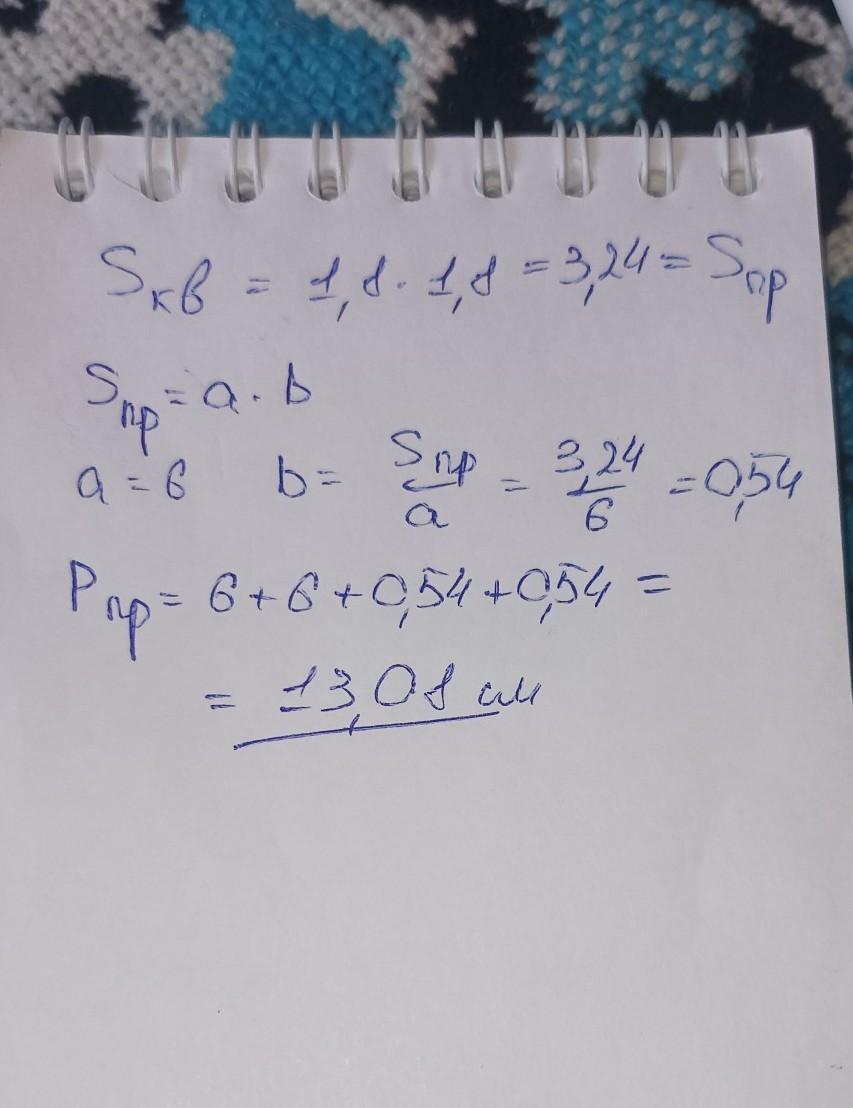 Sкв = 1,8 · 1,8 = 3,24 = Sпр
Sпр = a · b
a = 6 b = Sпр/a = 3,24/6 = 0,54
Pпр = 6 + 6 + 0,54 + 0,54 =
= 13,08 см